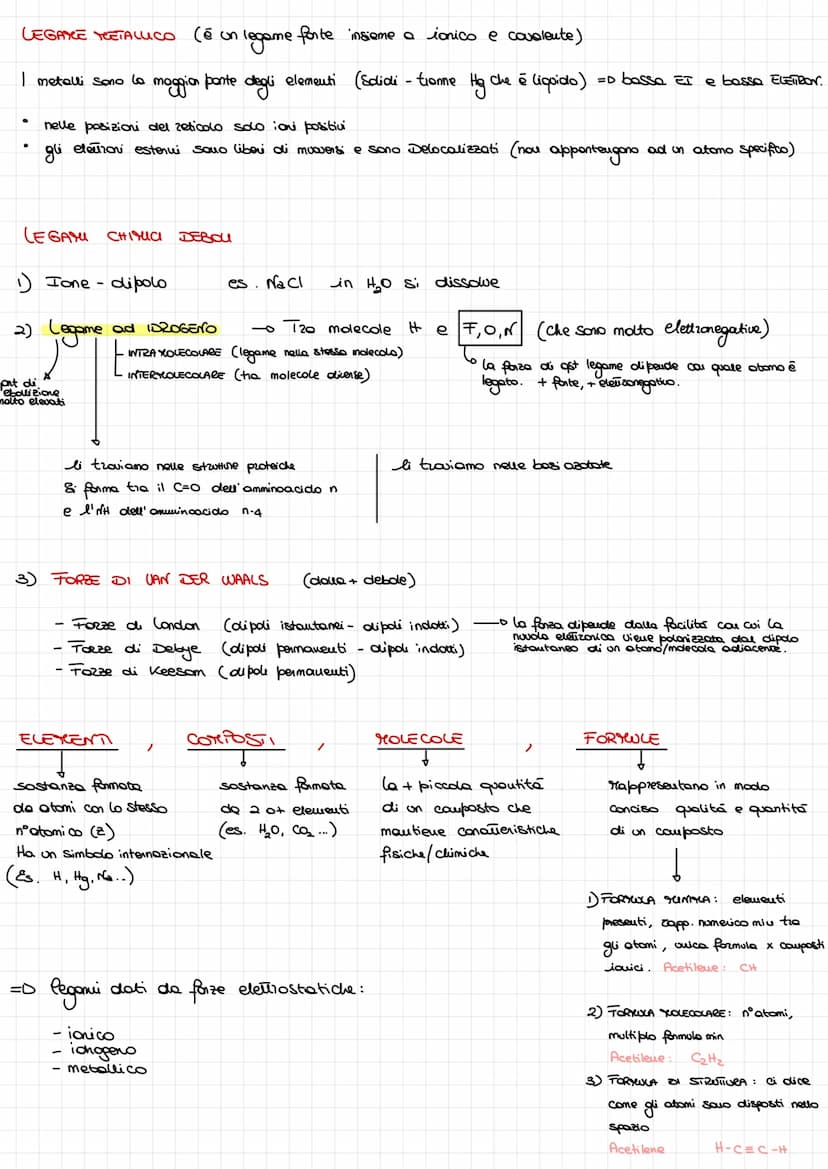 LEGAME METALLICO (è un legame forte insieme a ionico e covalente)
I metalli sono la maggior parte degli elementi (Solidi - tranne Hg che è liquido) => bassa EI e bassa ELETTRON.
• nelle posizioni del reticolo solo ioni positivi
• gli elettroni esterni sono liberi di muoversi e sono Delocalizzati (non appartengono ad un atomo specifico)
LEGAMI CHIMICI DEBOLI
1) Ione - dipolo es. NaCl in H₂O si dissolve
2) Legame ad IDROGENO → Tra molecole H e F, O, N (che sono molto elettronegative)
INTRAMOLECOLARE (legame nella stessa molecola)
INTERMOLECOLARE (tra molecole diverse)
la forza di qst legame dipende con quale atomo è
legato. + forte, + elettronegativo.
pnt di
ebollizione
molto elevati
li troviamo nelle strutture proteiche
Si forma tra il C=O dell'amminoacido n
e l'NH dell'amminoacido n-4
li troviamo nelle basi azotate
3) FORZE DI VAN DER WAALS (dalla + debole)
- Forze di London (dipoli istantanei - dipoli indotti) → la forza dipende dalla facilità con cui la
nuvola elettronica viene polarizzata dal dipolo
istantaneo di un atomo/molecola adiacente.
- Forze di Debye (dipoli permanenti - dipoli indotti)
- Forze di Keesom (dipoli permanenti)
ELEMENTI , COMPOSTI , MOLECOLE , FORMULE
sostanza formata
da atomi con lo stesso
n°atomico (Z)
Ha un simbolo internazionale
(Es. H, Hg, Na..)
sostanza formata
da 2 o + elementi
(es. H₂O, CO₂ ...)
la + piccola quantità
di un composto che
mantiene caratteristiche
fisiche/chimiche
Rappresentano in modo
conciso qualità e quantità
di un composto
1) FORMULA MINIMA: elementi
presenti, rapp. numerico min tra
gli atomi, unica formula x composti
ionici. Acetilene: CH
2) FORMULA MOLECOLARE: n°atomi,
multiplo formula min
Acetilene: C₂H₂
3) FORMULA DI STRUTTURA: ci dice
come gli atomi sono disposti nello
spazio
Acetilene H-C≡C-H
=> legami dati da forze elettrostatiche:
- ionico
- idrogeno
- metallico